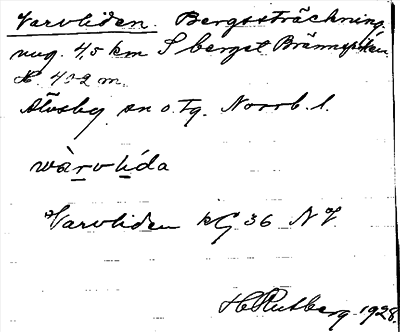 Varvliden. Bergssträckning.
ung. 4,5 km S berget Brännpiken.
H. 432 m.
Älvsby sn o. tg. Norrb. l.
wàrvlída
Varvliden kG 36 NV
H Rutberg 1928.